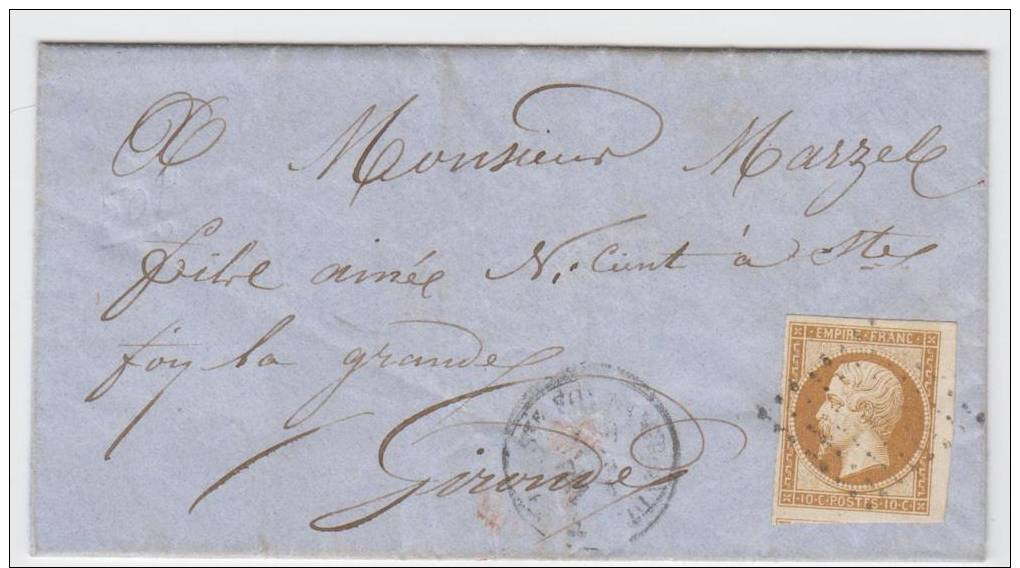 A Monsieur Marzel
fils ainé N.ciant à Ste
foy la grande
Gironde
EMPIRE FRANC
10·C·POSTES·10·C